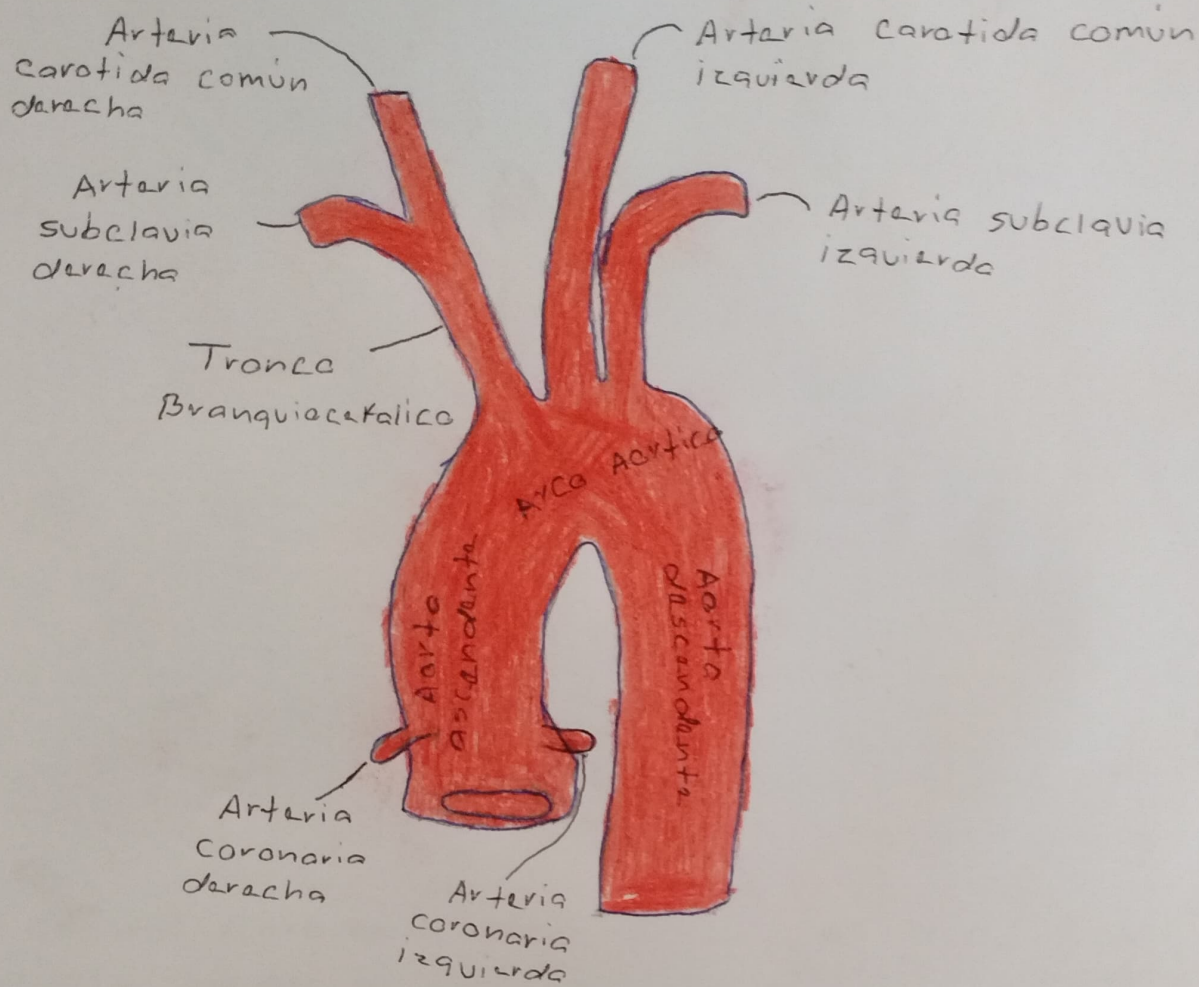 Arteria
carotida común
derecha
Arteria carotida común
izquierda
Arteria
subclavia
derecha
Arteria subclavia
izquierda
Tronco
Branquiocefalico
Arco Aortico
Aorta
ascendente
Aorta
descendente
Arteria
coronaria
derecha
Arteria
coronaria
izquierda